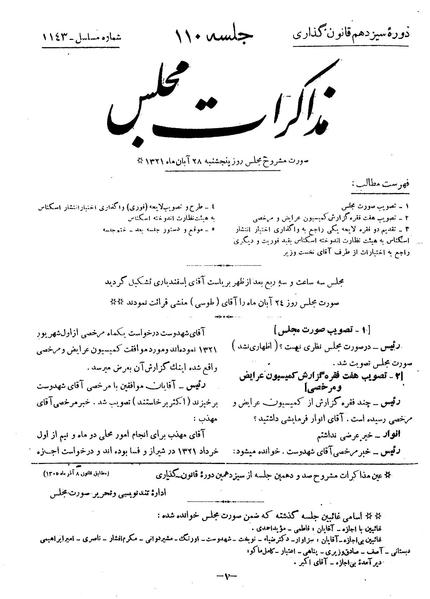 دورهٔ سیزدهم قانون گذاری
جلسه ۱۱۰
شماره مسلسل - ۱۱۴۳
مذاکرات مجلس
صورت مشروح مجلس روز پنجشنبه ۲۸ آبان ماه ۱۳۲۱ ※
فهرست مطالب:
۱ - تصویب صورت مجلس
۲ - تصویب هفت فقره گزارش کمیسیون عرایض و مرخصی
۳ - تقدیم دو فقره لایحه یکی راجع به واگذاری اختیار انتشار
اسکناس به هیئت نظارت اندوخته اسکناس بقید فوریت و دیگری
راجع به اختیارات از طرف آقای نخست وزیر
۴ - طرح و تصویب لایحه (فوری) واگذاری اختیار انتشار اسکناس
به هیئت نظارت اندوخته اسکناس
۵ - موقع و دستور جلسه بعد - ختم جلسه
مجلس سه ساعت و سه ربع بعد از ظهر بریاست آقای اسفندیاری تشکیل گردید
صورت مجلس روز ۲۴ آبان ماه را آقای (طوسی) منشی قرائت نمودند ※※
[۱ - تصویب صورت مجلس]
رئیس - در صورت مجلس نظری نیست؟ (اظهاری نشد)
صورت مجلس تصویب شد.
[۲ - تصویب هفت فقره گزارش کمیسیون عرایض
و مرخصی]
رئیس - چند فقره گزارش از کمیسیون عرایض و
مرخصی رسیده است. آقای انوار فرمایشی داشتید؟
انوار - خیر عرضی نداشتم
رئیس - خبر مرخصی آقای شهدوست. خوانده میشود:
آقای شهدوست درخواست یکماه مرخصی از اول شهریور
۱۳۲۱ نموده‌اند و مورد موافقت کمیسیون عرایض و مرخصی
واقع شده اینک گزارش آن بعرض میرسد.
رئیس - آقایان موافقین با مرخصی آقای شهدوست
برخیزند (اکثر برخاستند) تصویب شد. خبر مرخصی آقای
مهذب:
آقای مهذب برای انجام امور محلی دو ماه و نیم از اول
خرداد ۱۳۲۱ در شیراز و فسا بوده اند و درخواست اجازه
※ عین مذاکرات مشروح صد و دهمین جلسه از سیزدهمین دورهٔ قانون گذاری
(مطابق قانون ۸ آذر ماه ۱۳۰۵)
اداره تندنویسی و تحریر صورت مجلس
※※ اسامی غائبین جلسه گذشته که ضمن صورت مجلس خوانده شده:
غائبین با اجازه - آقایان: فاطمی - مؤید احمدی.
غائبین بی‌اجازه - آقایان: سزاوار - دکتر ضیاء - نوبخت - شهدوست - اورنگ - مشیردوانی - مکرم افشار - ناصری - امیر ابراهیمی
دبستانی - آصف - صادق وزیری - پناهی - اعتبار - کامل ماکو:
دیر آمدهٔ بی‌اجازه - آقای اکبر.
-۱-